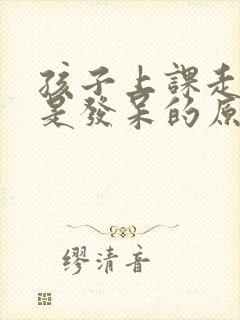 孩子上課走
是發呆的原
繆清音